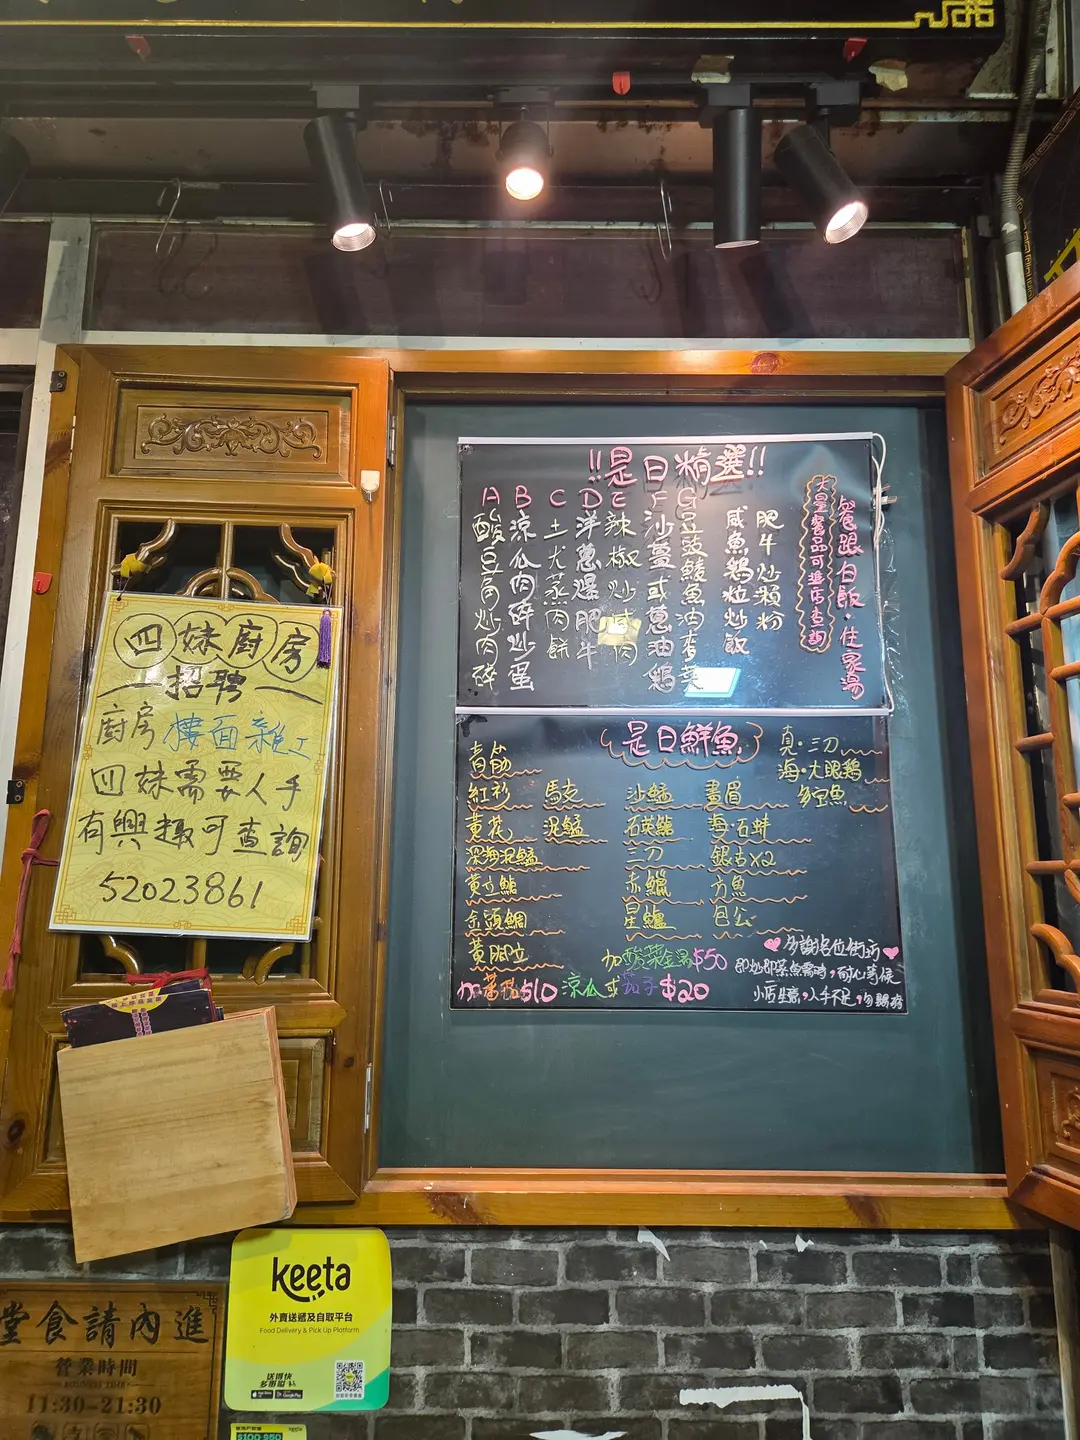 !!是日精選!!
A 酸豆角炒肉碎
B 涼瓜肉碎炒蛋
C 土尤蒸肉餅
D 洋蔥爆肥牛
E 辣椒炒咸肉
F 沙薑或蔥油鷄
G 豆豉鯪魚油麥菜
咸魚鷄粒炒飯
肥牛炒瀨粉
大量餐品可進店查詢
餐跟白飯·住家湯
是日鮮魚
真·三刀
海·大眼鷄
多宝魚
青筋
紅衫 馬友 沙鯭 畫眉
黃花 泥鯭 石英鯆 海·石蚌
深海泥鯭 三刀 銀古X2
黃立鯧 赤鱲 方魚
金頭鯛 星鱸 包公
黃腳立
加酸菜金湯$50
加蕃茄$10 涼瓜或茄子$20
多謝各位街坊
即炒即蒸魚需時,耐心等候
小店生意,人手不足,勿騷擾
四妹廚房
招聘
廚房 樓面 雜工
四妹需要人手
有興趣可查詢
52023861
keeta
外賣送遞及自取平台
Food Delivery & Pick Up Platform
送得快
多嘢揀
堂食請內進
營業時間
11:30-21:30